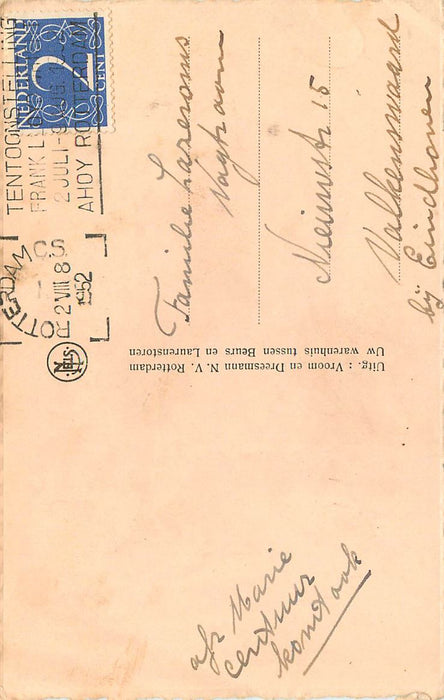 NEDERLAND
2
CENT
TENTOONSTELLING
FRANK L
2 JULI
AHOY ROTTERDAM
ROTTERDAM CS
2 VIII 8
1952
Familie Lazeroms
Nieuwstr 15
Valkenswaard
bij Eindhoven
NELS
Uitg. : Vroom en Dreesmann N. V. Rotterdam
Uw warenhuis tussen Beurs en Laurenstoren
afz Marie
komt ook